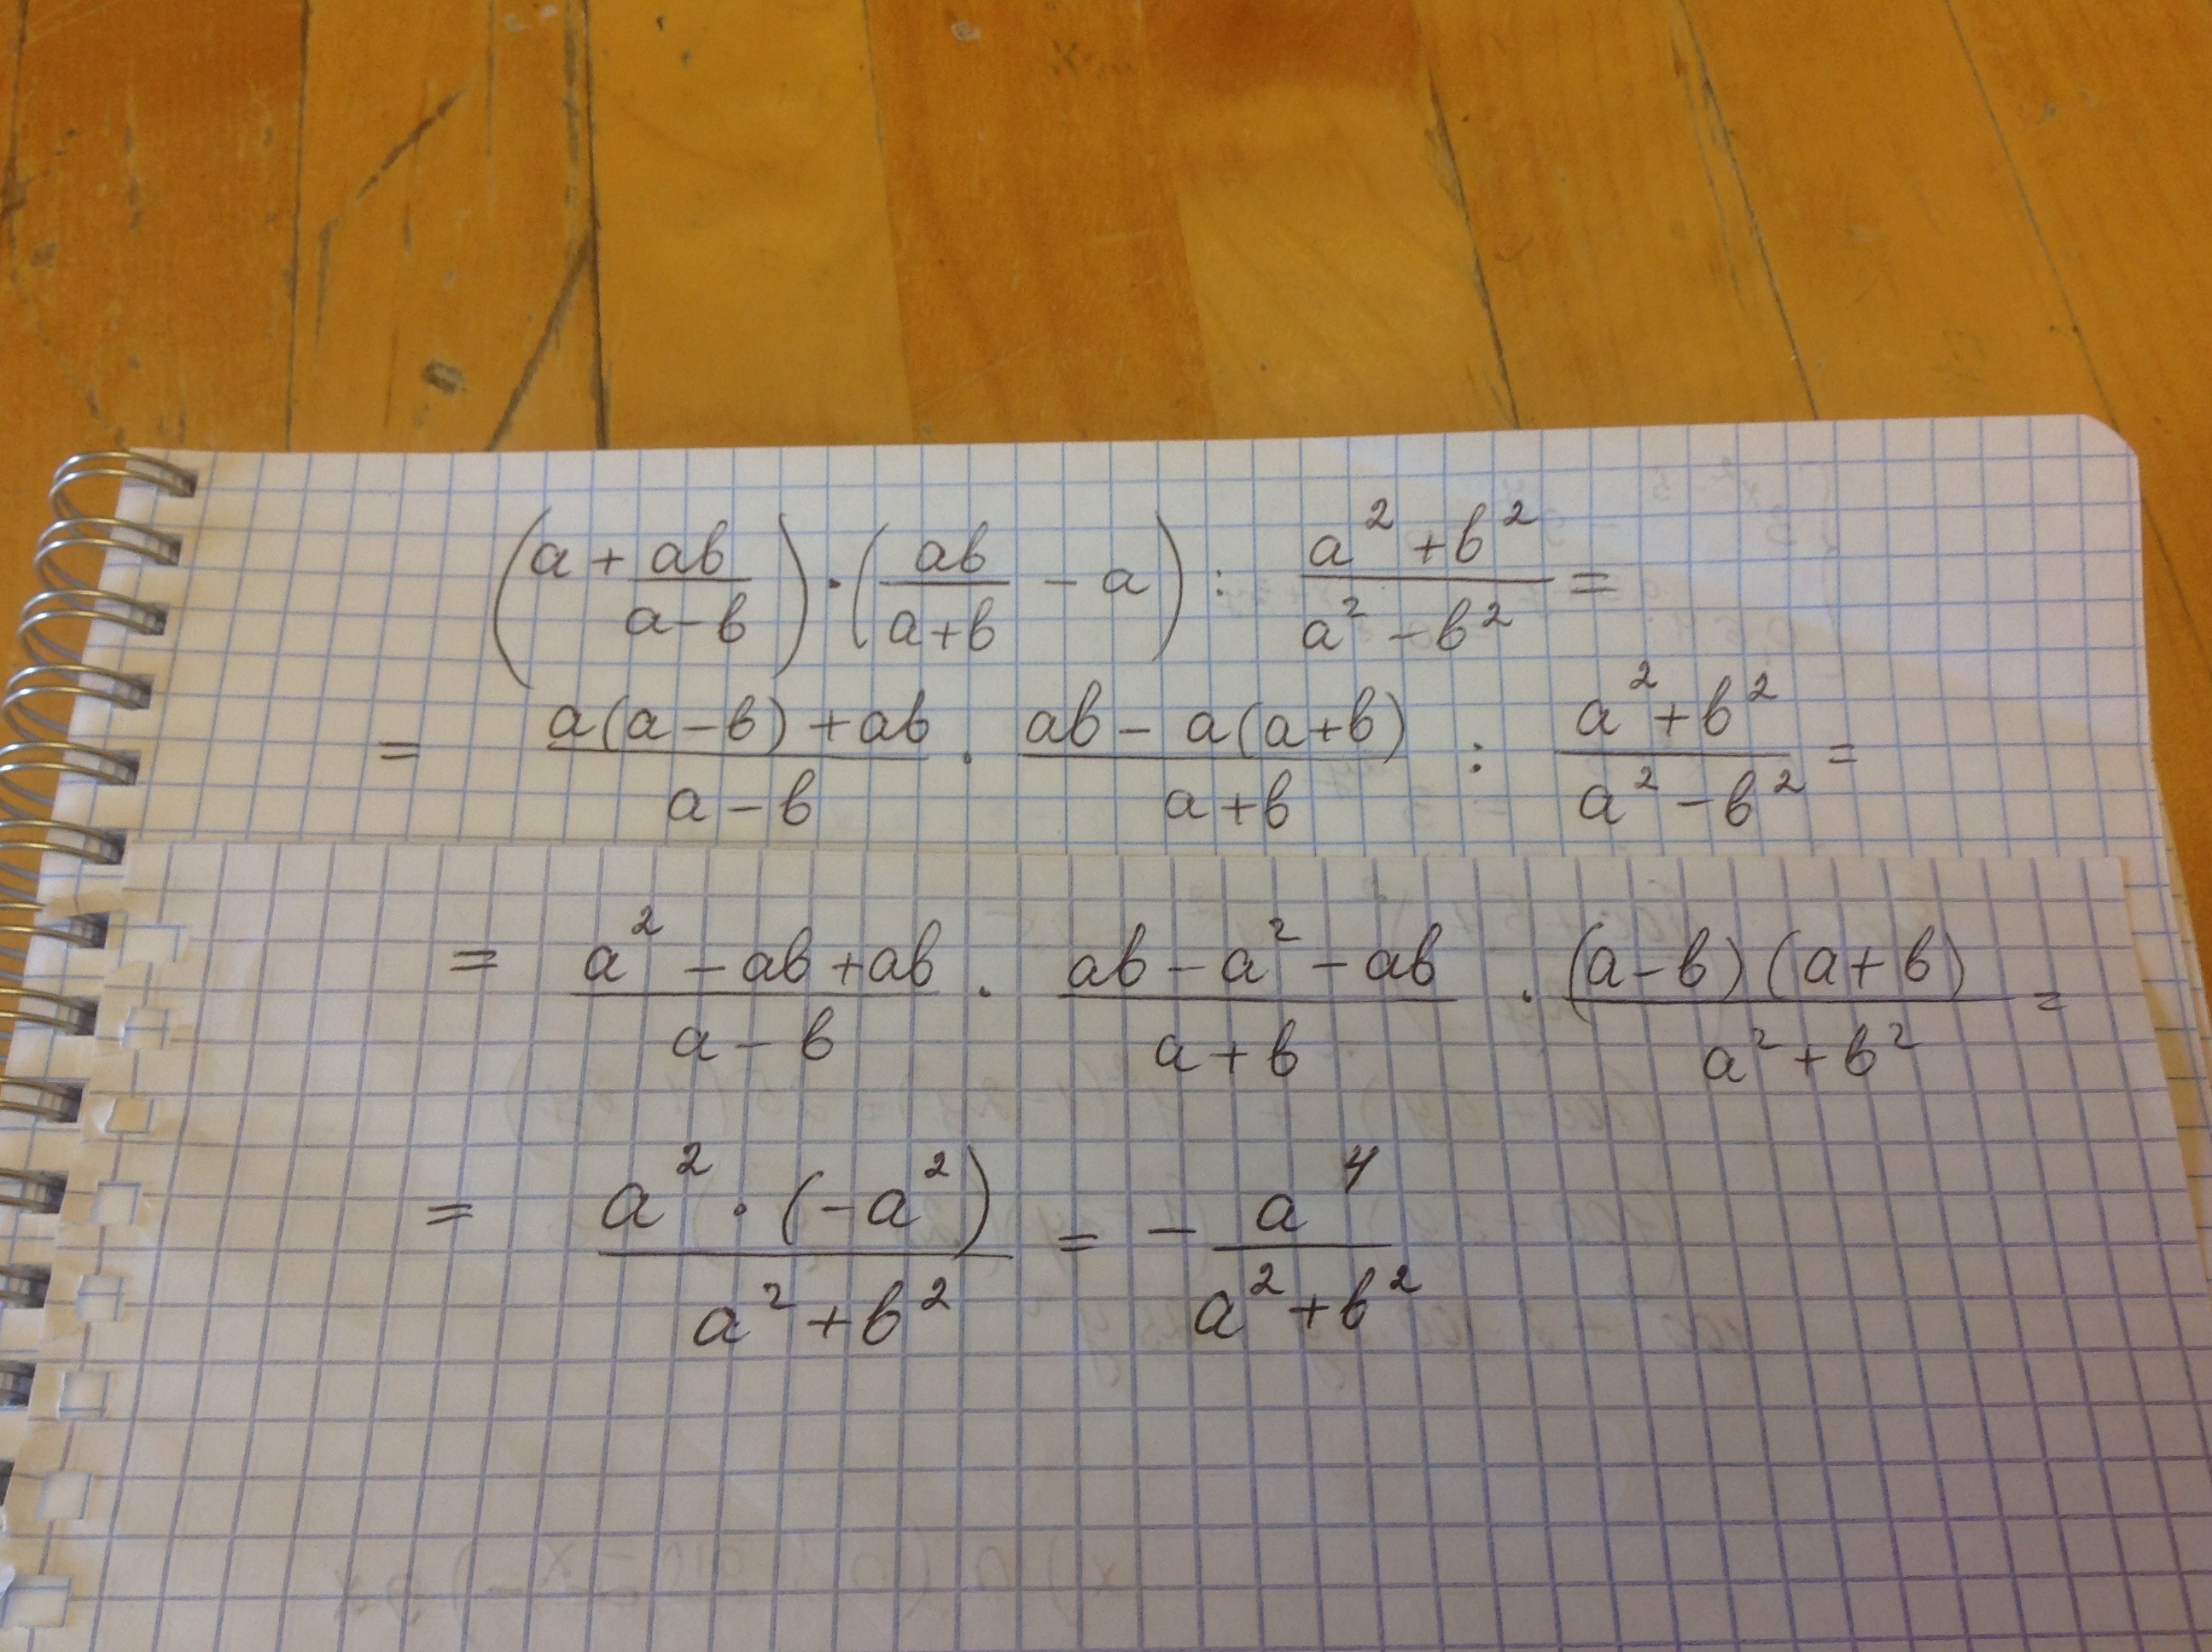 (a + ab/(a-b)) · (ab/(a+b) - a) : (a² + b²)/(a² - b²) =
= (a(a-b) + ab)/(a-b) · (ab - a(a+b))/(a+b) : (a² + b²)/(a² - b²) =
= (a² - ab + ab)/(a-b) · (ab - a² - ab)/(a+b) · ((a-b)(a+b))/(a² + b²) =
= (a² · (-a²))/(a² + b²) = - a⁴/(a² + b²)